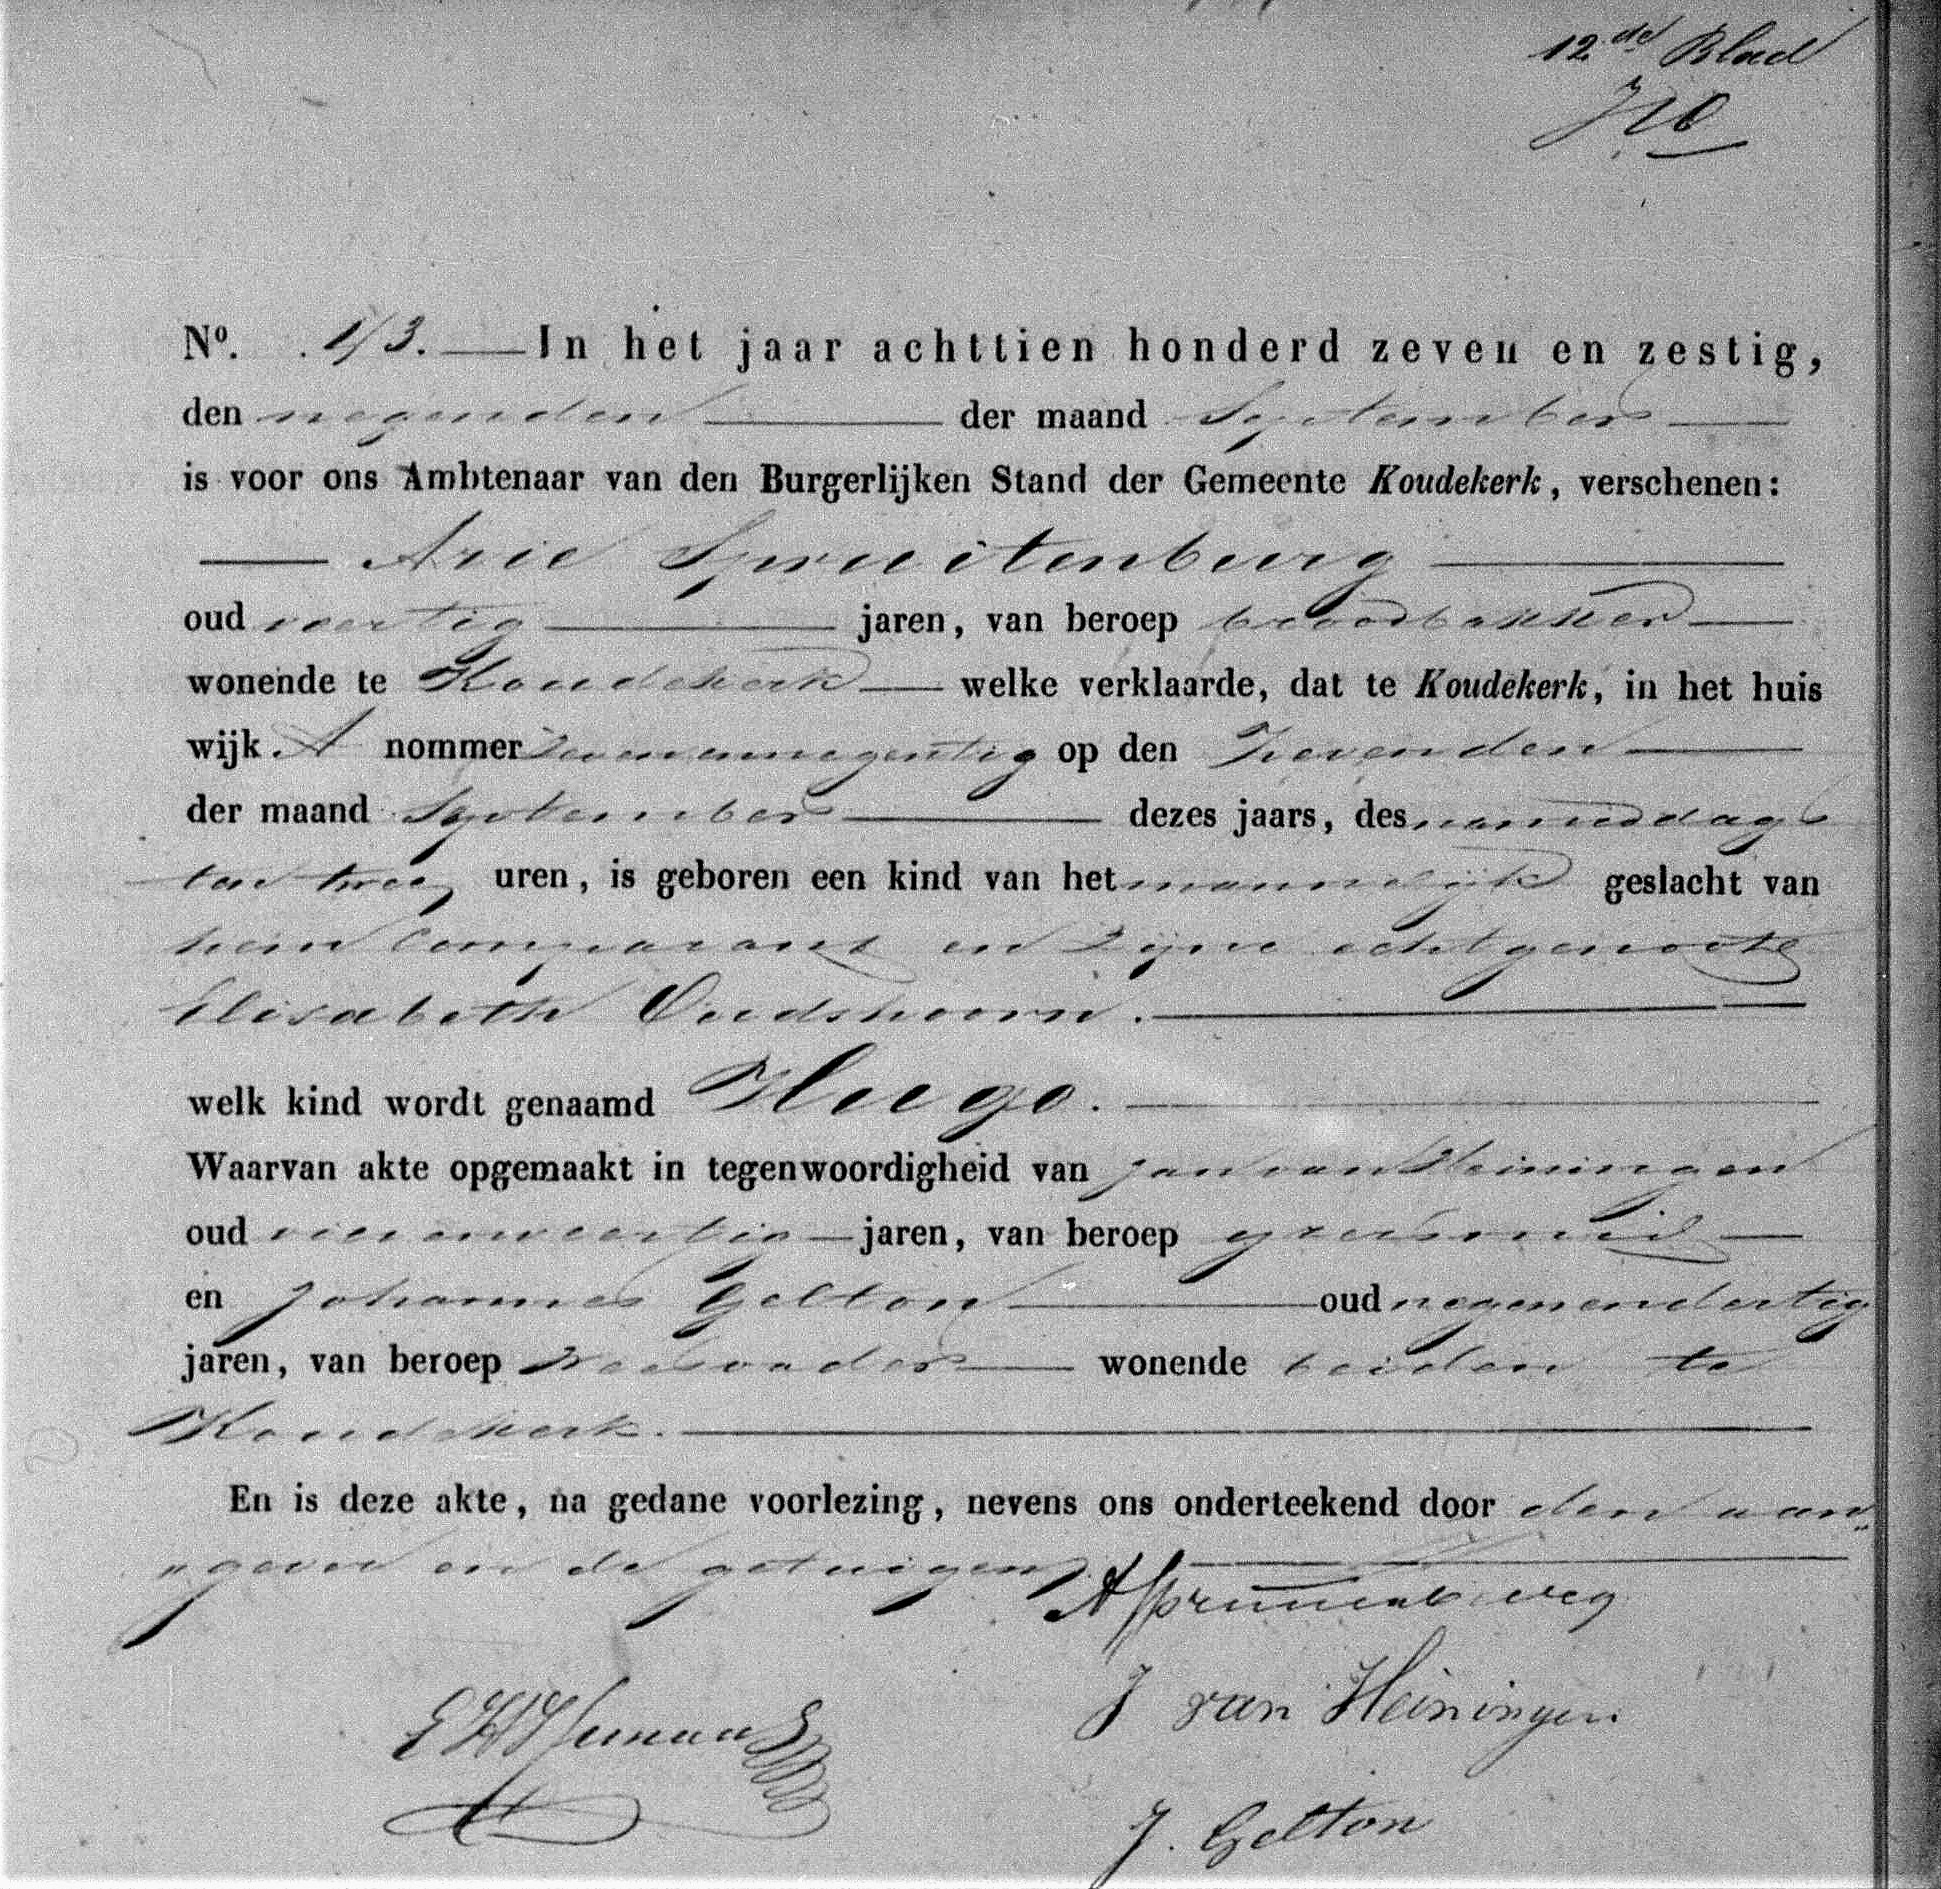 12de Blad
No. 43. In het jaar achttien honderd zeven en zestig,
den negenden der maand September
is voor ons Ambtenaar van den Burgerlijken Stand der Gemeente Koudekerk, verschenen:
Arie Spruitenburg
oud veertig jaren, van beroep broodbakker
wonende te Koudekerk welke verklaarde, dat te Koudekerk, in het huis
wijk A nommer op den zevenden
der maand September dezes jaars, des namiddags
ten twee uren, is geboren een kind van het mannelijk geslacht van
hem Comparant en zijne echtgenoote
Elisabeth Oudshoorn.
welk kind wordt genaamd Hugo.
Waarvan akte opgemaakt in tegenwoordigheid van Jan van Heiningen
oud vierenveertig jaren, van beroep grofsmid
en Johannes Gelton oud negenendertig
jaren, van beroep wonende beiden te
Koudekerk.
En is deze akte, na gedane voorlezing, nevens ons onderteekend door den aan„
„gever en de getuigen.
A Spruitenburg
J van Heiningen.
J. Gelton